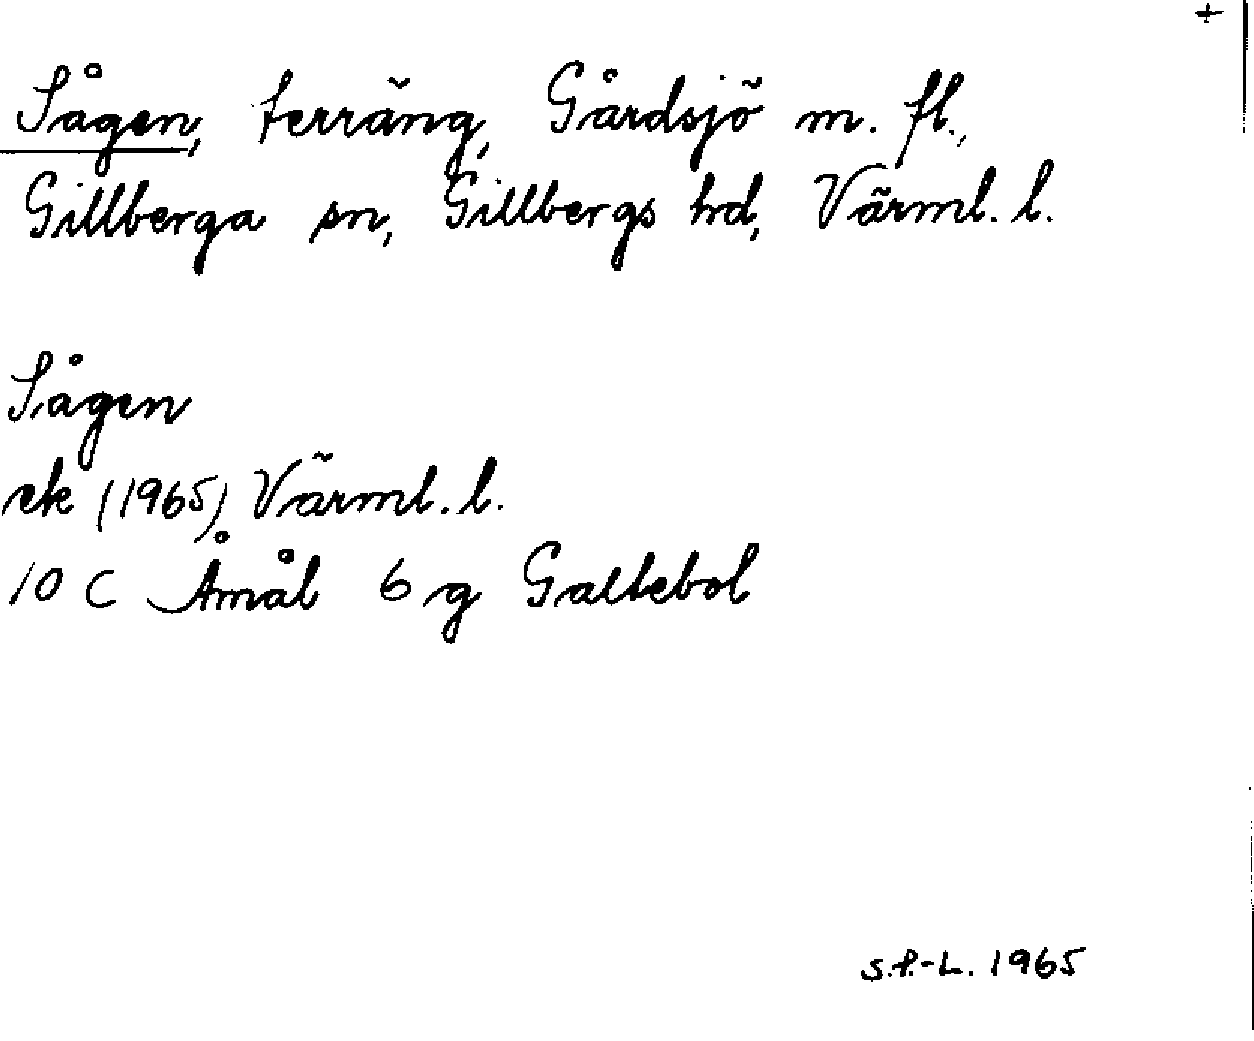 +
Sågen, terräng, Gårdsjö m. fl.,
Gillberga sn, Gillbergs hd, Värml. l.
Sågen
ek (1965), Värml. l.
10 C Åmål 6 g Galtebol
S.P.-L. 1965